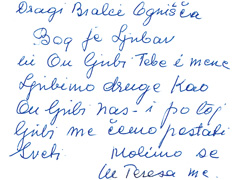 Dragi Bralci Ognišća
Bog je Ljubav
in On ljubi Tebe i mene
Ljubimo druge Kao
On ljubi nas - i po toj
ljubi me ćemo postati
Sveti Molimo se
M Teresa mc.